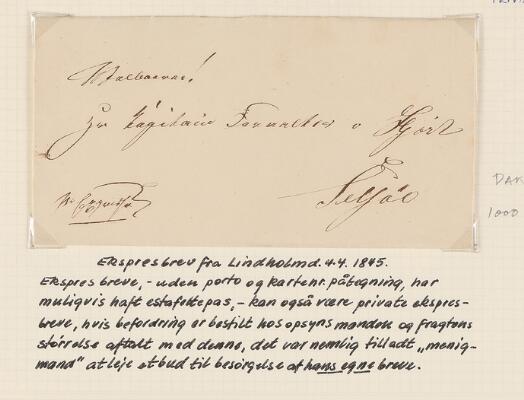 Velbaarne!
Hr Capitain Forvalter v Hjört
Selsöe
pr Expresse
DAK
1000
Ekspresbrev fra Lindholm d. 4.4. 1845.
Ekspresbreve, - uden porto og kartenr. påtegning, har
muligvis haft estafettepas, - kan også være private ekspres-
breve, hvis befordring er bestilt hos opsynsmanden og fragtens
størrelse aftalt med denne, det var nemlig tilladt „menig-
mand" at leje et bud til besörgelse af hans egne breve.